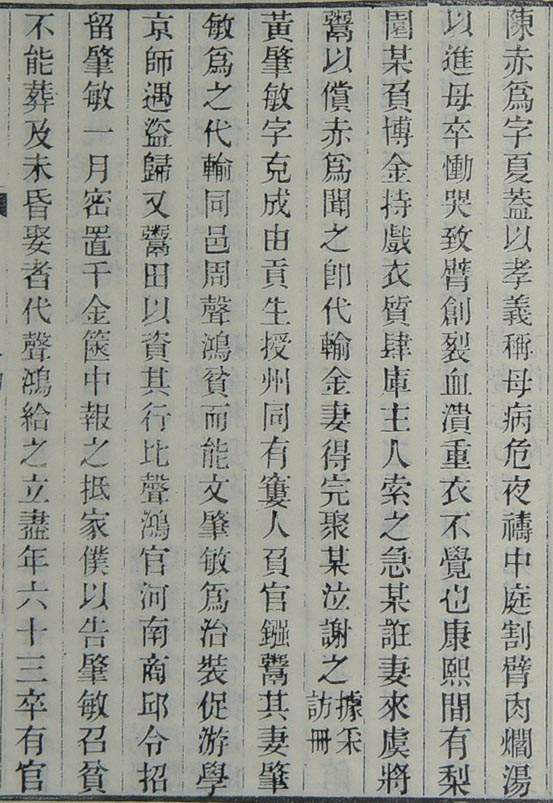 陳赤為字夏蓋以孝義稱母病危夜禱中庭割臂肉爓湯
以進母卒慟哭致臂創裂血潰重衣不覺也康熙間有梨
園某負博金持戲衣質肆庫主人索之急某誑妻來虞將
鬻以償赤為聞之卽代輸金妻得完聚某泣謝之據采訪冊
黃肇敏字克成由貢生授州同有窶人負官鏹鬻其妻肇
敏為之代輸同邑周聲鴻貧而能文肇敏為治裝促游學
京師遇盜歸又鬻田以資其行比聲鴻官河南商邱令招
留肇敏一月密置千金篋中報之抵家僕以告肇敏召貧
不能葬及未昏娶者代聲鴻給之立盡年六十三卒有官